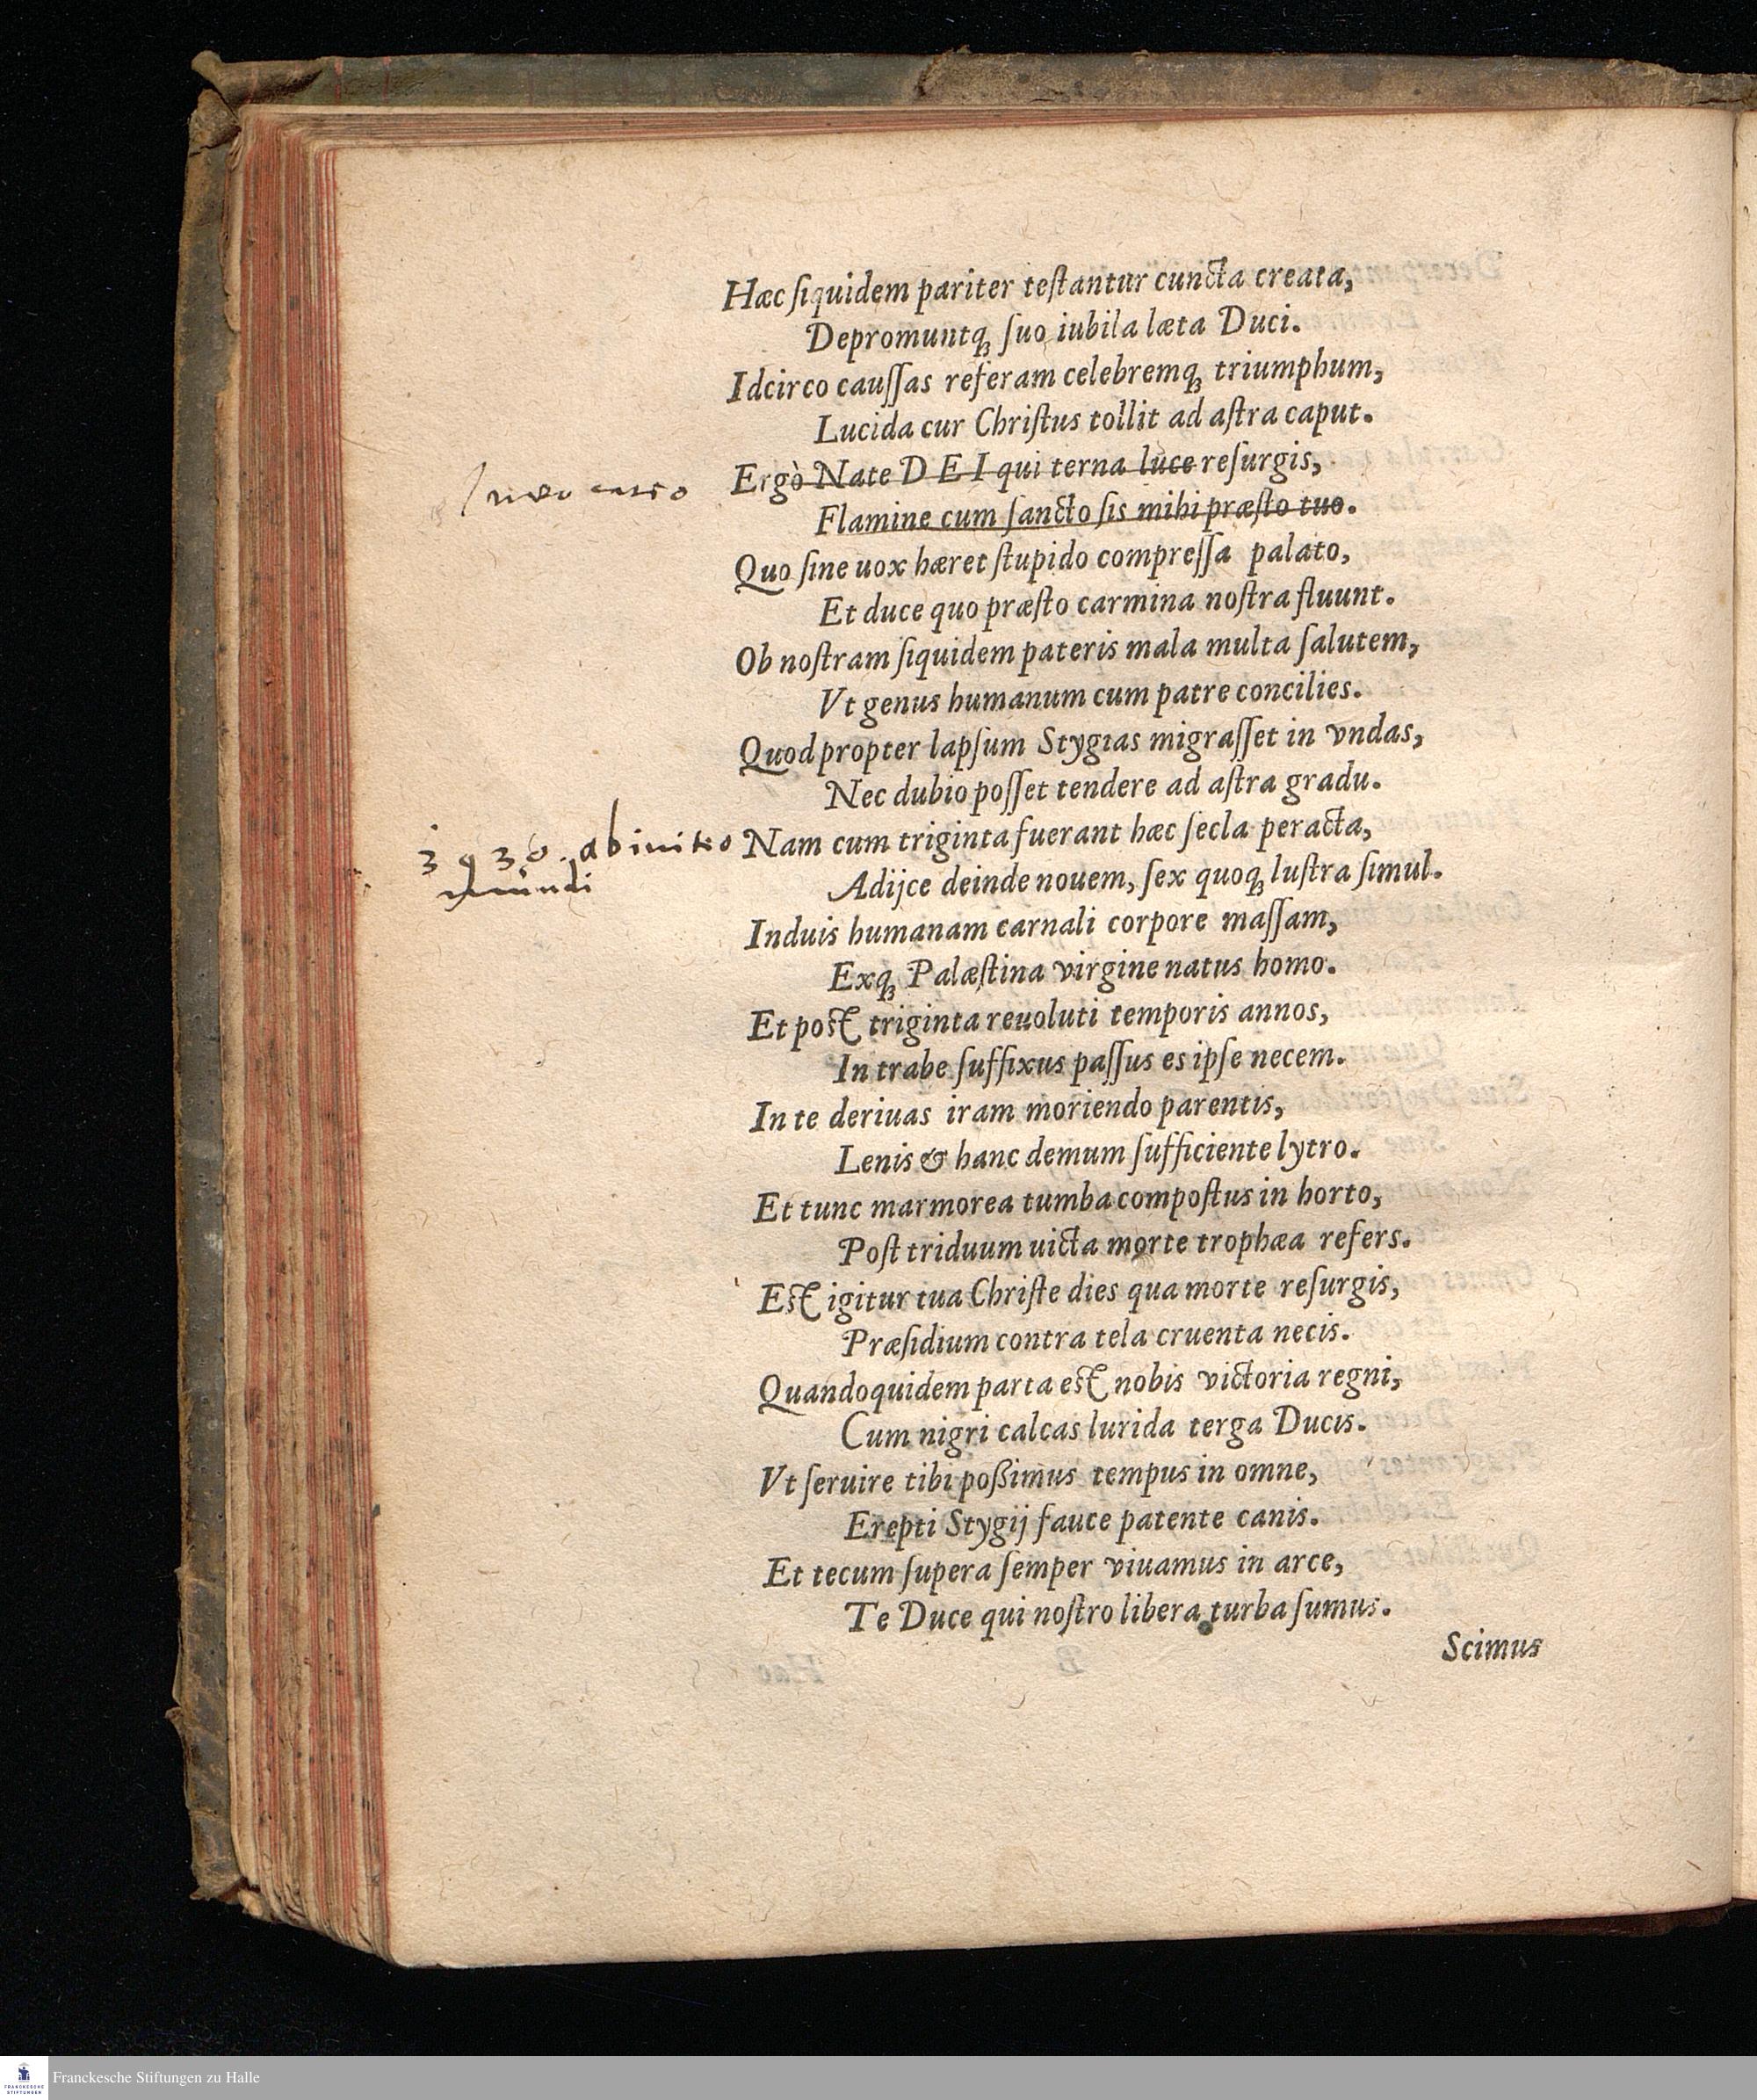 Hæc ſiquidem pariter teſtantur cuncta creata,
Depromuntq́ʒ ſuo iubila læta Duci.
Idcirco cauſſas referam celebremqʒ triumphum,
Lucida cur Chriſtus tollit ad aſtra caput.
Inuocatio
Ergò Nate DEI qui terna luce reſurgis,
Flamine cum ſancto ſis mihi præſto tuo.
Quo ſine uox hæret ſtupido compreſſa palato,
Et duce quo præſto carmina noſtra fluunt.
Ob noſtram ſiquidem pateris mala multa ſalutem,
Vt genus humanum cum patre concilies.
Quod propter lapſum Stygias migraſſet in vndas,
Nec dubio poſſet tendere ad aſtra gradu.
3930. ab initio
mundi
Nam cum triginta fuerant hæc ſecla peracta,
Adijce deinde nouem, ſex quoqʒ luſtra ſimul.
Induis humanam carnali corpore maſſam,
Exqʒ Palæſtina virgine natus homo.
Et poſt triginta reuoluti temporis annos,
In trabe ſuffixus paſſus es ipſe necem.
In te deriuas iram moriendo parentis,
Lenis & hanc demum ſufficiente lytro.
Et tunc marmorea tumba compoſtus in horto,
Poſt triduum uicta morte trophæa refers.
Eſt igitur tua Chriſte dies qua morte reſurgis,
Præſidium contra tela cruenta necis.
Quandoquidem parta eſt nobis victoria regni,
Cum nigri calcas lurida terga Ducis.
Vt ſeruire tibi poßimus tempus in omne,
Erepti Stygij fauce patente canis.
Et tecum ſupera ſemper viuamus in arce,
Te Duce qui noſtro libera turba ſumus.
Scimus
Franckesche Stiftungen zu Halle
FRANCKESCHE
STIFTUNGEN